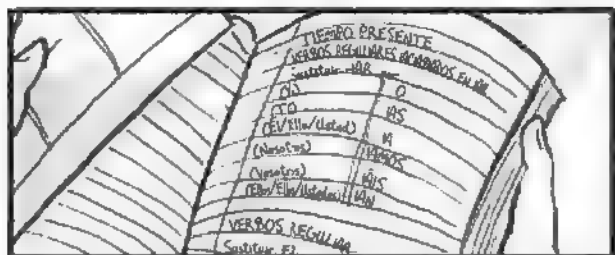 TIEMPO PRESENTE
VERBOS REGULARES ACABADOS EN AR
Sustituir -AR
(YO) O
(TÚ) AS
(El/Ella/Usted) A
(Nosotros) AMOS
(Vosotros) ÁIS
(Ellos/Ella/Ustedes) AN
VERBOS REGULAR
Sustituir